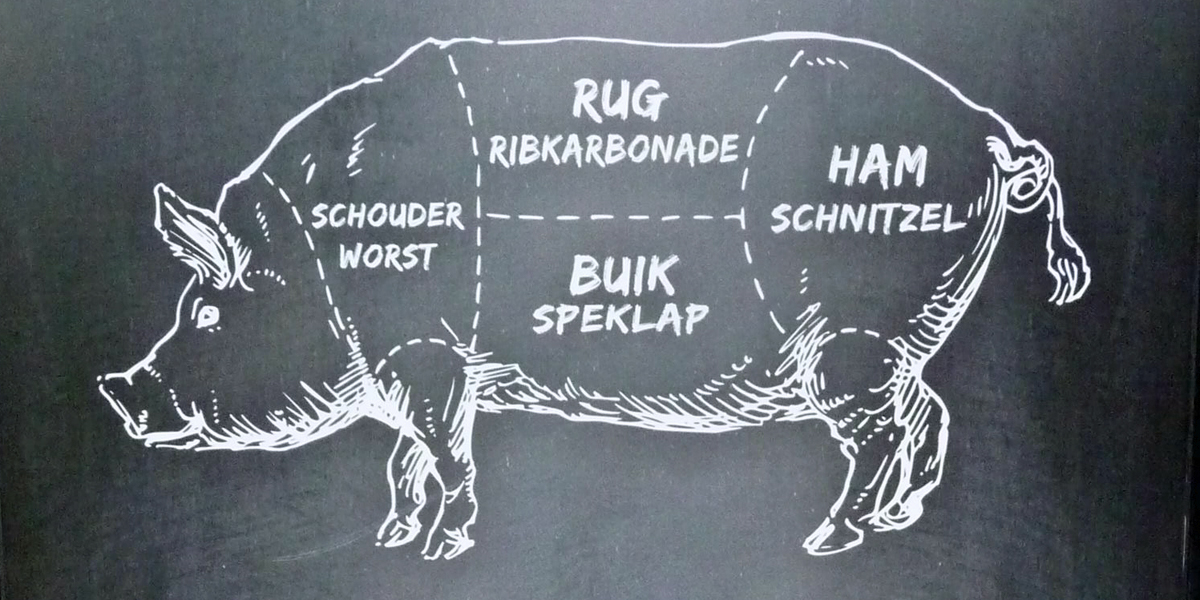 SCHOUDER
WORST
RUG
RIBKARBONADE
BUIK
SPEKLAP
HAM
SCHNITZEL